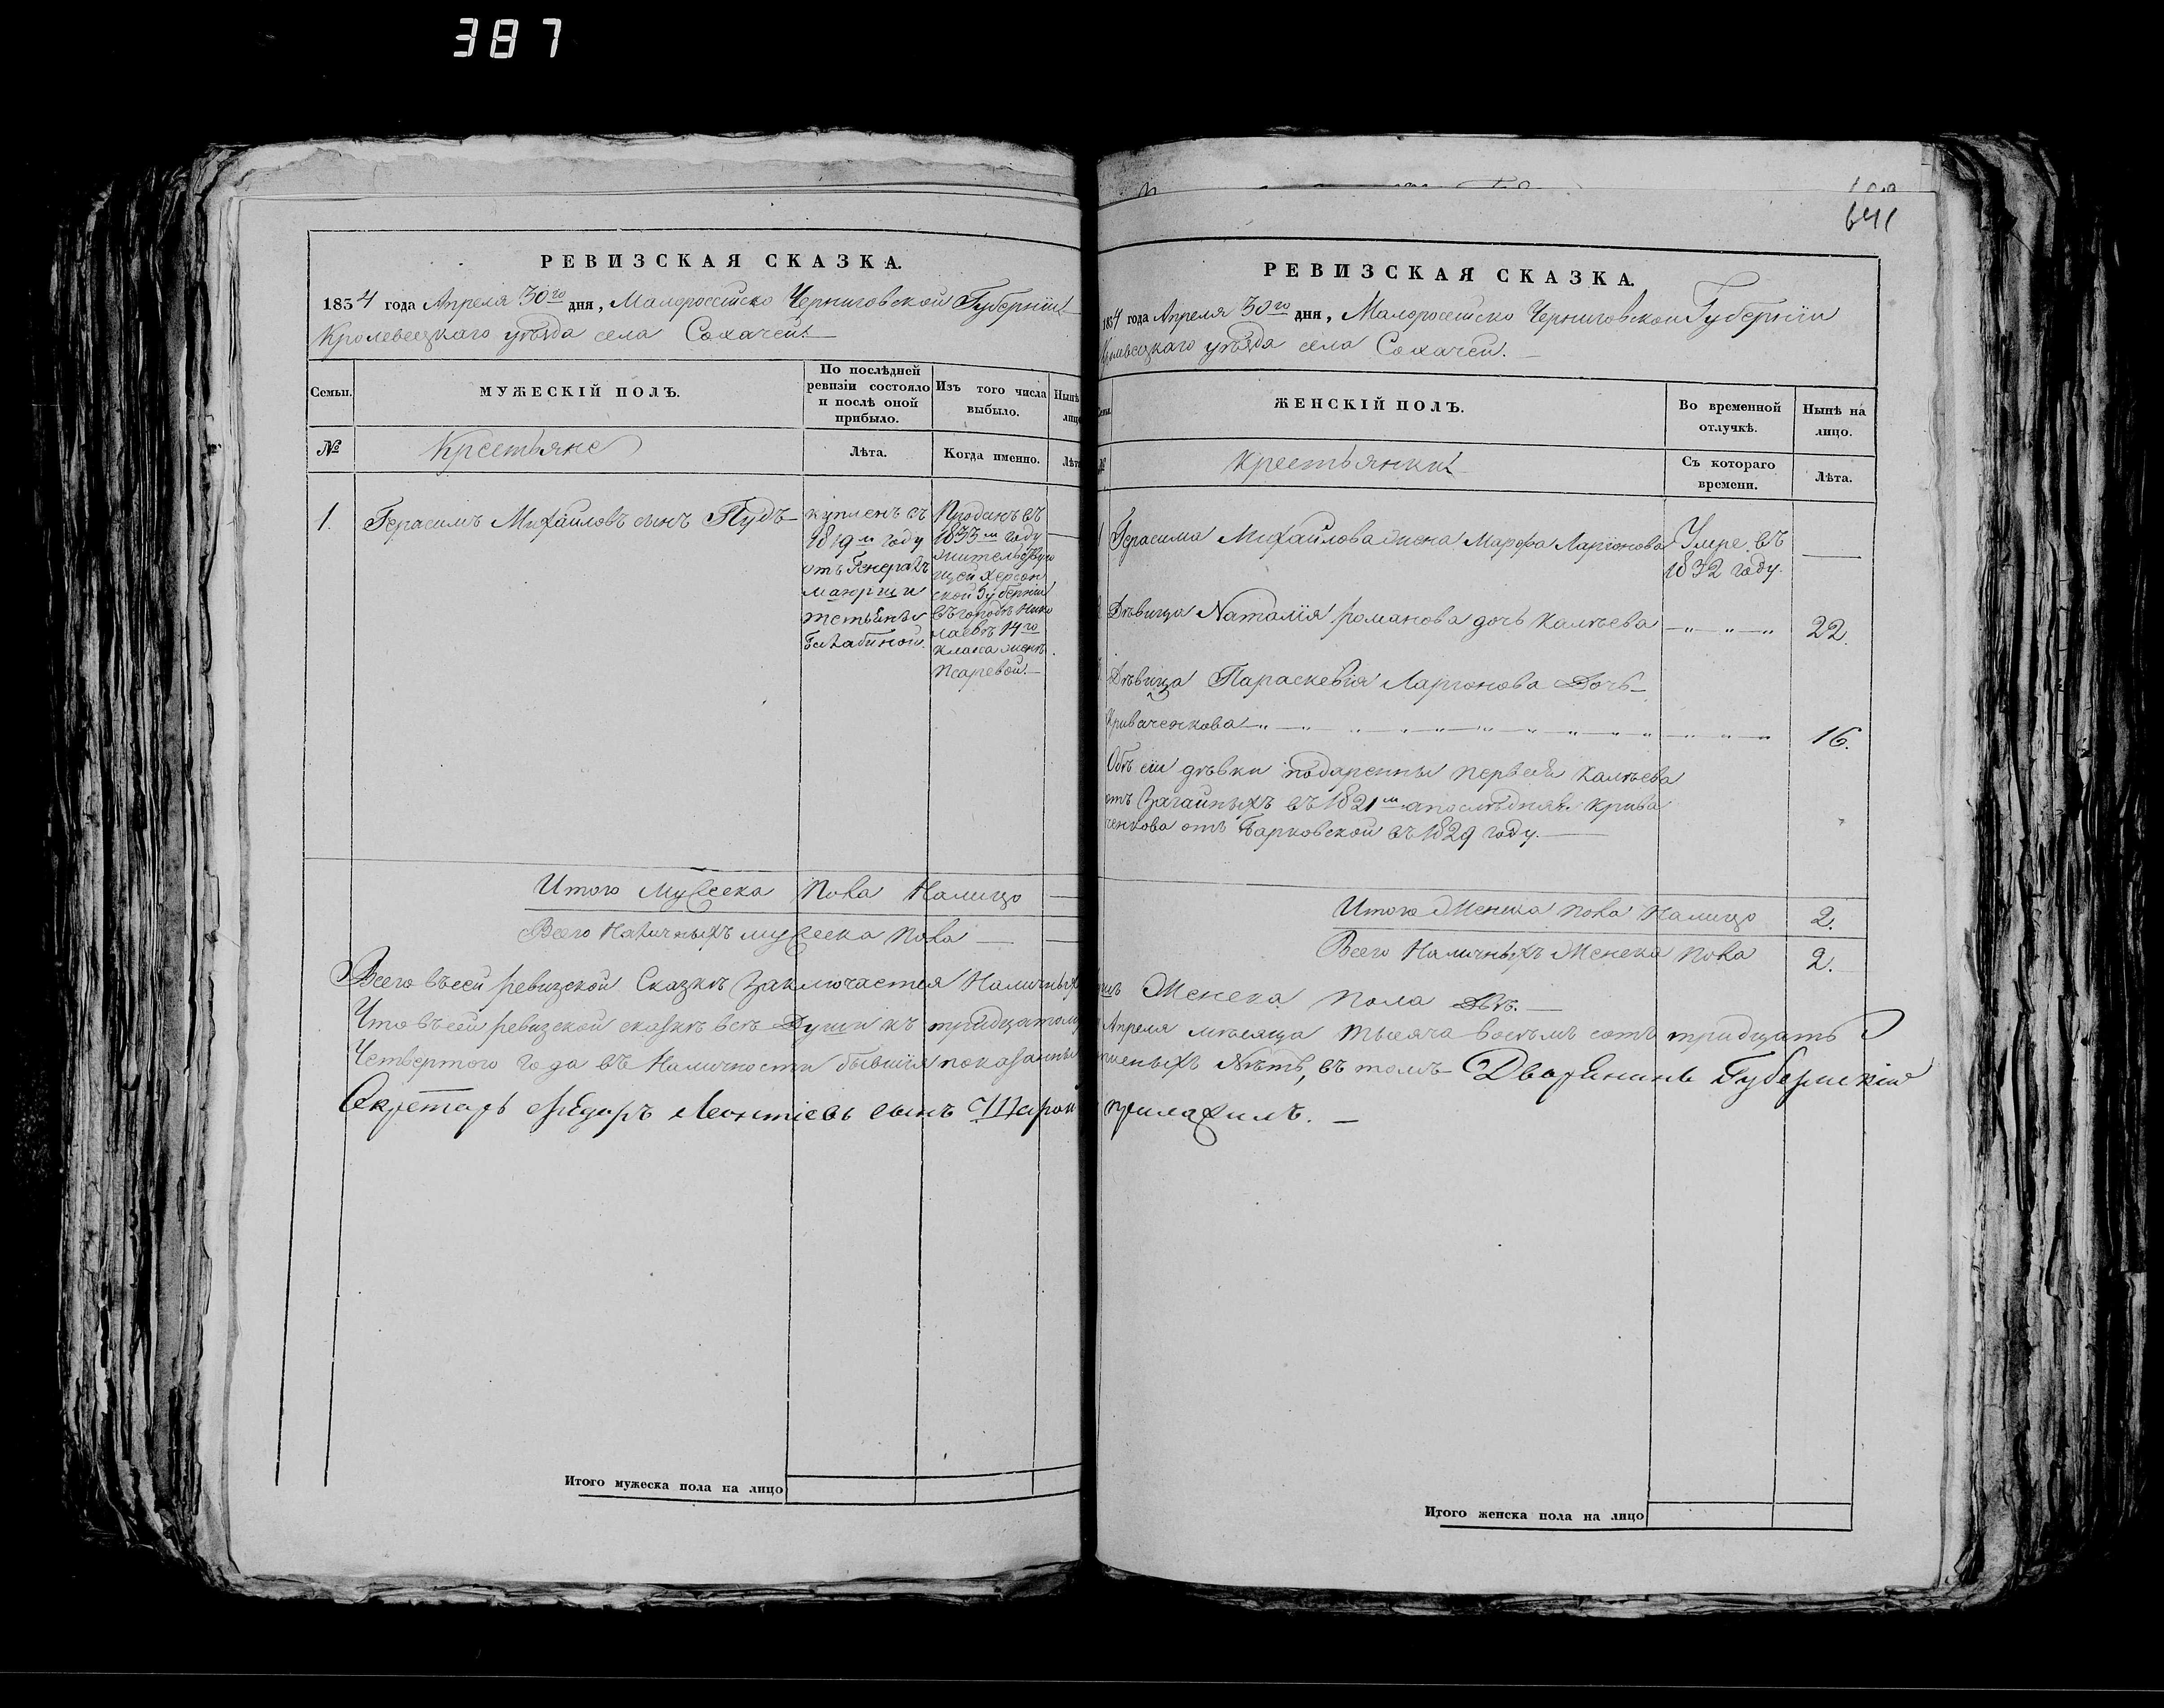 387
641
РЕВИЗСКАЯ СКАЗКА.
1834 года Апреля 30го дня, Малороссийско Черниговской Губернїи
Кролевецкаго уѣзда села Сохачей.
Семьи.
МУЖЕСКІЙ ПОЛЪ.
По послѣдней
ревизіи состояло
и послѣ оной
прибыло.
Изъ того числа
выбыло.
Нынѣ
лицо
№
Крестьяне
Лѣта.
Когда именно.
Лѣта
1.
Герасимъ Михайловъ сынъ Пудъ
купленъ въ
1819м году
отъ Генералъ
маіорши
Проданъ въ
1833м году
жительствую
щей Херсон
ской Губернїи
въ городѣ Нико
лаевѣ 14го
класса женѣ
Псаревой.
Итого Мужеска пола Налицо
Всего Наличныхъ мужеска пола
Итого мужеска пола на лицо
РЕВИЗСКАЯ СКАЗКА.
1834 года Апреля 30го дня, Малоросейско Черниговской Губернїи
Кролевецкаго уѣзда села Сохачей.
ЖЕНСКІЙ ПОЛЪ.
Во временной
отлучкѣ.
Нынѣ на
лицо.
Крестьянки
Съ котораго
времени.
Лѣта.
Герасима Михайлова жена Марфа Ларїонова
Умре въ
1832 году.
Дѣвица Наталїя романова дочь Калѣева
22.
Дѣвица Параскевїя Ларїонова Дочь
Криваченкова
16.
Обѣ сїи дѣвки подаренны первея Калѣева
отъ Загайныхъ въ 1821м а последняя Крива
ченкова отъ Барковской въ 1829 году.
Итого Женска пола Налицо 2.
Всего Наличныхъ Женска пола 2.
Всего въсей ревизской Сказкѣ Заключается Наличныхъ душъ Женска пола Двѣ.
Что въсей ревизской сказкѣ всѣ Души къ тридцатому Апреля мѣсяца тысяча восѣмъ сотъ тридцать
Четвертого года въ Наличности бывшїя показанны Нѣтъ, въ томъ Дворянинъ Губернскій
Секретарь Федоръ Леонтіевъ сынъ приложилъ.
Итого женска пола на лицо